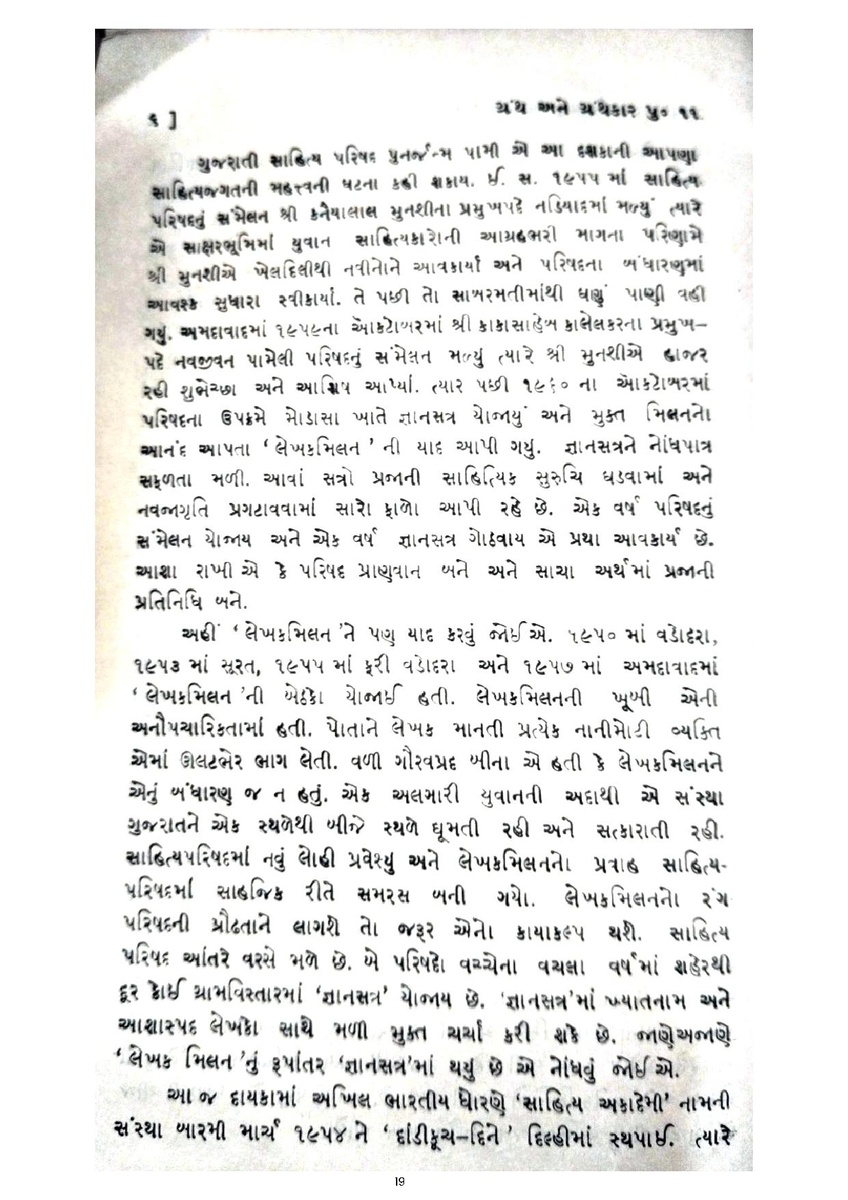 ૬ ]
ગ્રંથ અને ગ્રંથકાર પુ૦ ૧૧
ગુજરાતી સાહિત્ય પરિષદ પુનર્જન્મ પામી એ આ દશકાની આપણા
સાહિત્યજગતની મહત્ત્વની ઘટના કહી શકાય. ઈ. સ. ૧૯૫૫ માં સાહિત્ય
પરિષદનું સંમેલન શ્રી કનૈયાલાલ મુનશીના પ્રમુખપદે નડિયાદમાં મળ્યું ત્યારે
એ સાક્ષરભૂમિમાં યુવાન સાહિત્યકારોની આગ્રહભરી માગના પરિણામે
શ્રી મુનશીએ ખેલદિલીથી નવીનોને આવકાર્યા અને પરિષદના બંધારણમાં
આવશ્ક સુધારા સ્વીકાર્યા. તે પછી તો સાબરમતીમાંથી ઘણું પાણી વહી
ગયું. અમદાવાદમાં ૧૯૫૯ના ઑકટોબરમાં શ્રી કાકાસાહેબ કાલેલકરના પ્રમુખ–
પદે નવજીવન પામેલી પરિષદનું સંમેલન મળ્યું ત્યારે શ્રી મુનશીએ હાજર
રહી શુભેચ્છા અને આશિષ આપ્યાં. ત્યાર પછી ૧૯૬૦ ના ઑકટોબરમાં
પરિષદના ઉપક્રમે મોડાસા ખાતે જ્ઞાનસત્ર યોજાયું અને મુક્ત મિલનનો
આનંદ આપતા ‘ લેખકમિલન ’ ની યાદ આપી ગયું. જ્ઞાનસત્રને નોંધપાત્ર
સફળતા મળી. આવાં સત્રો પ્રજાની સાહિત્યિક સુરુચિ ઘડવામાં અને
નવજાગૃતિ પ્રગટાવવામાં સારો ફાળો આપી રહે છે. એક વર્ષ પરિષદનું
સંમેલન યોજાય અને એક વર્ષ જ્ઞાનસત્ર ગોઠવાય એ પ્રથા આવકાર્ય છે.
આશા રાખી એ કે પરિષદ પ્રાણવાન બને અને સાચા અર્થમાં પ્રજાની
પ્રતિનિધિ બને.
અહીં ‘ લેખકમિલન ’ને પણ યાદ કરવું જોઈ એ. ૧૯૫૦ માં વડોદરા,
૧૯૫૩ માં સૂરત, ૧૯૫૫ માં ફરી વડોદરા અને ૧૯૫૭ માં અમદાવાદમાં
‘ લેખકમિલન ’ની બેઠકો યોજાઈ હતી. લેખકમિલનની ખૂબી એની
અનૌપચારિકતામાં હતી. પોતાને લેખક માનતી પ્રત્યેક નાનીમોટી વ્યક્તિ
એમાં ઊલટભેર ભાગ લેતી. વળી ગૌરવપ્રદ બીના એ હતી કે લેખકમિલનને
એનું બંધારણ જ ન હતું. એક અલગારી યુવાનની અદાથી એ સંસ્થા
ગુજરાતને એક સ્થળેથી બીજે સ્થળે ઘૂમતી રહી અને સત્કારાતી રહી.
સાહિત્યપરિષદમાં નવું લોહી પ્રવેશ્યુ અને લેખકમિલનનો પ્રવાહ સાહિત્ય-
પરિષદમાં સાહજિક રીતે સમરસ બની ગયો. લેખકમિલનનો રંગ
પરિષદની પ્રૌઢતાને લાગશે તો જરૂર એનો કાયાકલ્પ થશે. સાહિત્ય
પરિષદ આંતરે વરસે મળે છે. બે પરિષદો વચ્ચેના વચલા વર્ષમાં શહેરથી
દૂર કોઈ ગ્રામવિસ્તારમાં ‘જ્ઞાનસત્ર’ યોજાય છે. ‘જ્ઞાનસત્ર’માં ખ્યાતનામ અને
આશાસ્પદ લેખકો સાથે મળી મુક્ત ચર્ચા કરી શકે છે. જાણેઅજાણે
‘ લેખક મિલન ’નું રૂપાંતર ‘જ્ઞાનસત્ર’માં થયુ છે એ નોંધવું જોઈ એ.
આ જ દાયકામાં અખિલ ભારતીય ધોરણે ‘સાહિત્ય અકાદેમી’ નામની
સંસ્થા બારમી માર્ચ ૧૯૫૪ ને ‘ દાંડીકૂચ–દિને ’ દિલ્હીમાં સ્થપાઈ. ત્યારે
19